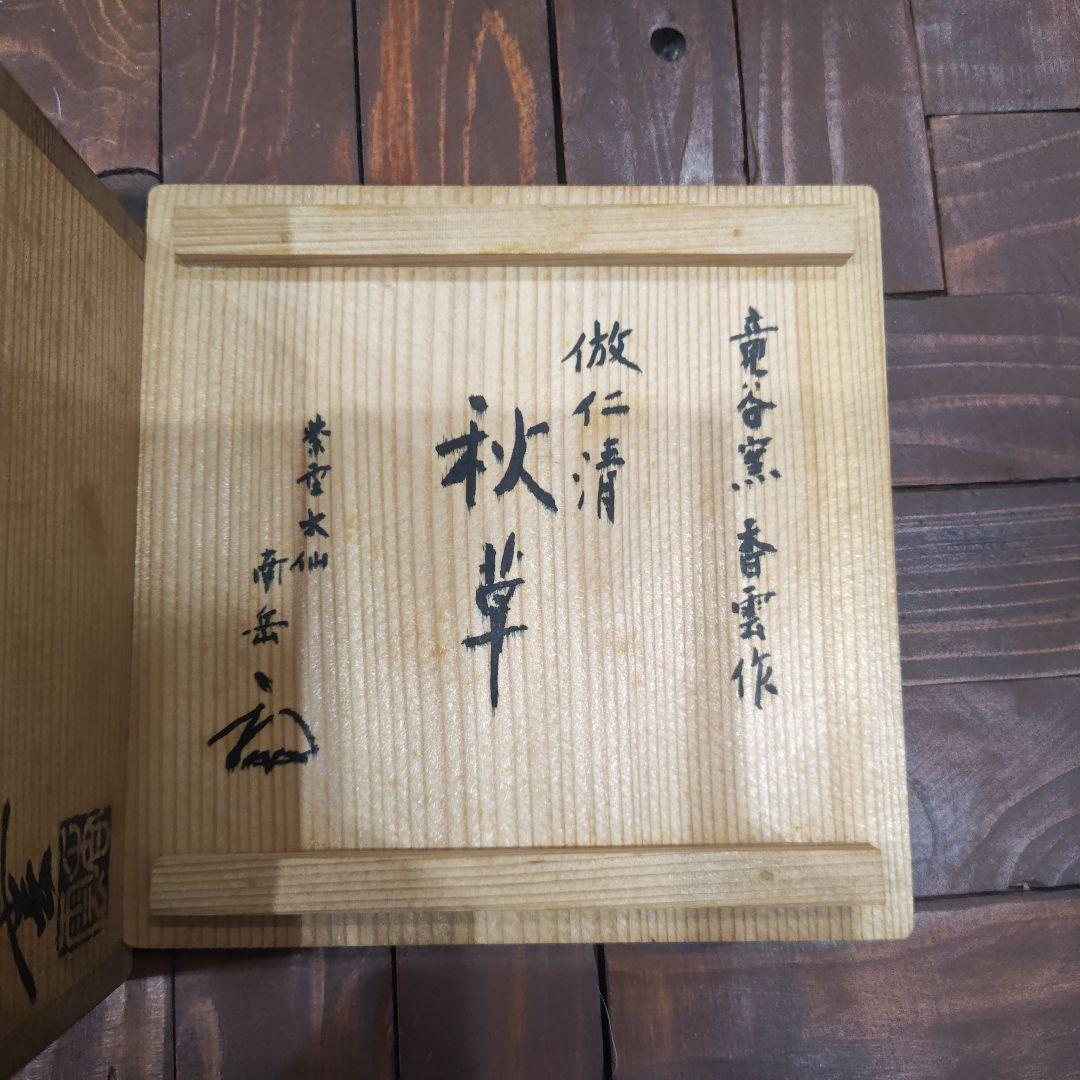 竜谷窯 香雲作
倣仁清
秋草
紫雲水仙
南岳